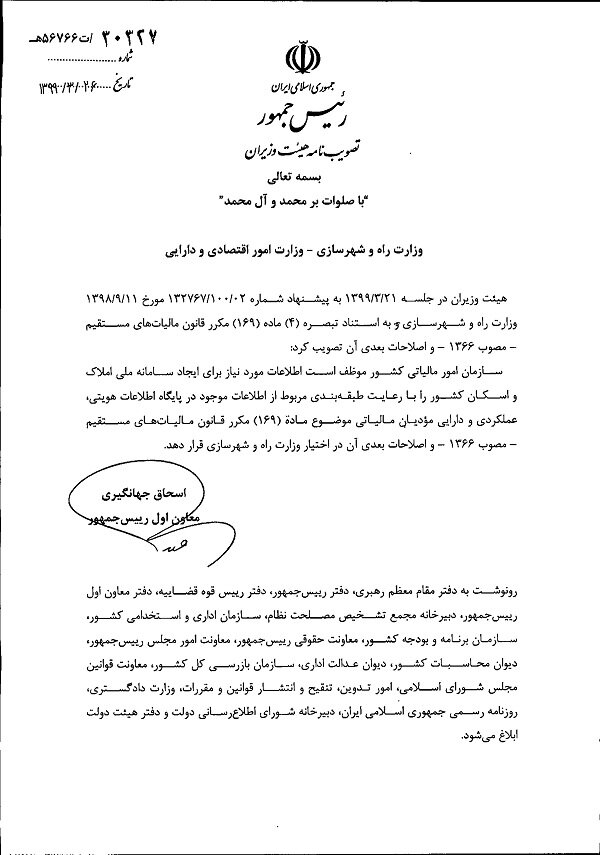 ۳۰۳۲۷ /ت۵۶۷۶۶هـ
شماره ......................
تاریخ ۱۳۹۹/۰۳/۲۶
جمهوری اسلامی ایران
رئیس جمهور
تصویب نامه هیئت وزیران
بسمه تعالی
"با صلوات بر محمد و آل محمد"
وزارت راه و شهرسازی – وزارت امور اقتصادی و دارایی
هیئت وزیران در جلسه ۱۳۹۹/۳/۲۱ به پیشنهاد شماره ۱۳۲۷۶۷/۱۰۰/۰۲ مورخ ۱۳۹۸/۹/۱۱
وزارت راه و شهرسازی و به استناد تبصره (۴) ماده (۱۶۹) مکرر قانون مالیات‌های مستقیم
– مصوب ۱۳۶۶ – و اصلاحات بعدی آن تصویب کرد:
سازمان امور مالیاتی کشور موظف است اطلاعات مورد نیاز برای ایجاد سامانه ملی املاک
و اسکان کشور را با رعایت طبقه‌بندی مربوط از اطلاعات موجود در پایگاه اطلاعات هویتی،
عملکردی و دارایی مؤدیان مالیاتی موضوع مادۀ (۱۶۹) مکرر قانون مالیات‌های مستقیم
– مصوب ۱۳۶۶ – و اصلاحات بعدی آن در اختیار وزارت راه و شهرسازی قرار دهد.
اسحاق جهانگیری
معاون اول رییس‌جمهور
رونوشت به دفتر مقام معظم رهبری، دفتر رییس‌جمهور، دفتر رییس قوه قضاییه، دفتر معاون اول
رییس‌جمهور، دبیرخانه مجمع تشخیص مصلحت نظام، سازمان اداری و استخدامی کشور،
سازمان برنامه و بودجه کشور، معاونت حقوقی رییس‌جمهور، معاونت امور مجلس رییس‌جمهور،
دیوان محاسبات کشور، دیوان عدالت اداری، سازمان بازرسی کل کشور، معاونت قوانین
مجلس شورای اسلامی، امور تدوین، تنقیح و انتشار قوانین و مقررات، وزارت دادگستری،
روزنامه رسمی جمهوری اسلامی ایران، دبیرخانه شورای اطلاع‌رسانی دولت و دفتر هیئت دولت
ابلاغ می‌شود.